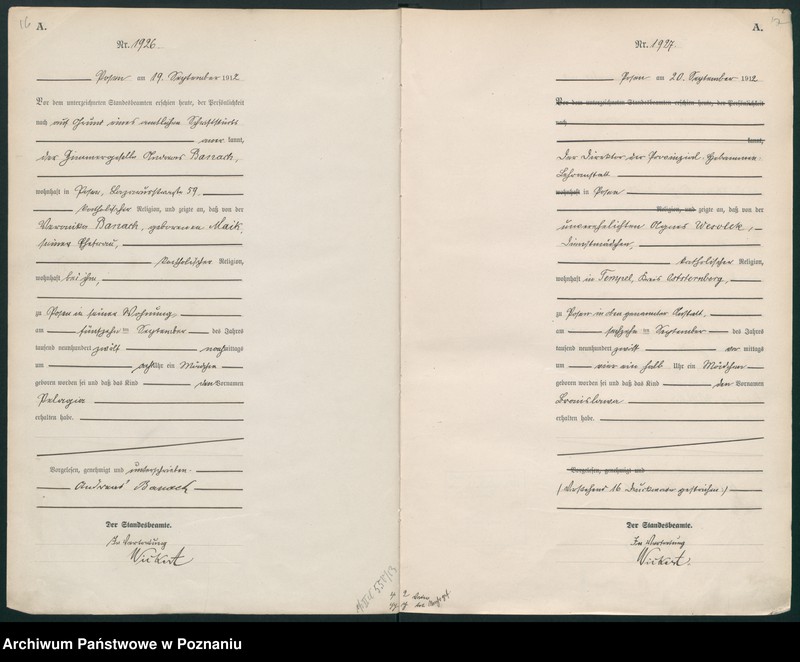 16 A.
Nr. 1926.
Posen am 19. September 1912
Vor dem unterzeichneten Standesbeamten erschien heute, der Persönlichkeit
nach auf Grund eines amtlichen Schriftstücks
aner kannt,
der Zimmergeselle Andreas Banach,
wohnhaft in Posen, Lazarusstraße 59
Katholischer Religion, und zeigte an, daß von der
Veronika Banach, geborenen Maik,
seiner Ehefrau,
katholischer Religion,
wohnhaft bei ihm,
zu Posen in seiner Wohnung
am fünfzehn ten September des Jahres
tausend neunhundert zwölf nachmittags
um acht Uhr ein Mädchen
geboren worden sei und daß das Kind den Vornamen
Pelagia
erhalten habe.
Vorgelesen, genehmigt und unterschrieben
Andreas Banach
Der Standesbeamte.
In Vertretung
Wickert
A.
Nr. 1927.
Posen am 20. September 1912
Vor dem unterzeichneten Standesbeamten erschien heute, der Persönlichkeit
nach
kannt,
Der Direktor der Provinzial-Hebammen-
Lehranstalt
wohnhaft in Posen
Religion, und zeigte an, daß von der
unverehelichten Agnes
Dienstmädchen,
katholischer Religion,
wohnhaft in Tempel, Kreis Oststernberg,
zu Posen in der genannten Anstalt,
am sechzehn ten September des Jahres
tausend neunhundert zwölf vor mittags
um vier ein halb Uhr ein Mädchen
geboren worden sei und daß das Kind den Vornamen
Bronislawa
erhalten habe.
Vorgelesen, genehmigt und
(Vorstehend 16 Druckworte gestrichen.)
Der Standesbeamte.
In Vertretung
Wickert.
Archiwum Państwowe w Poznaniu